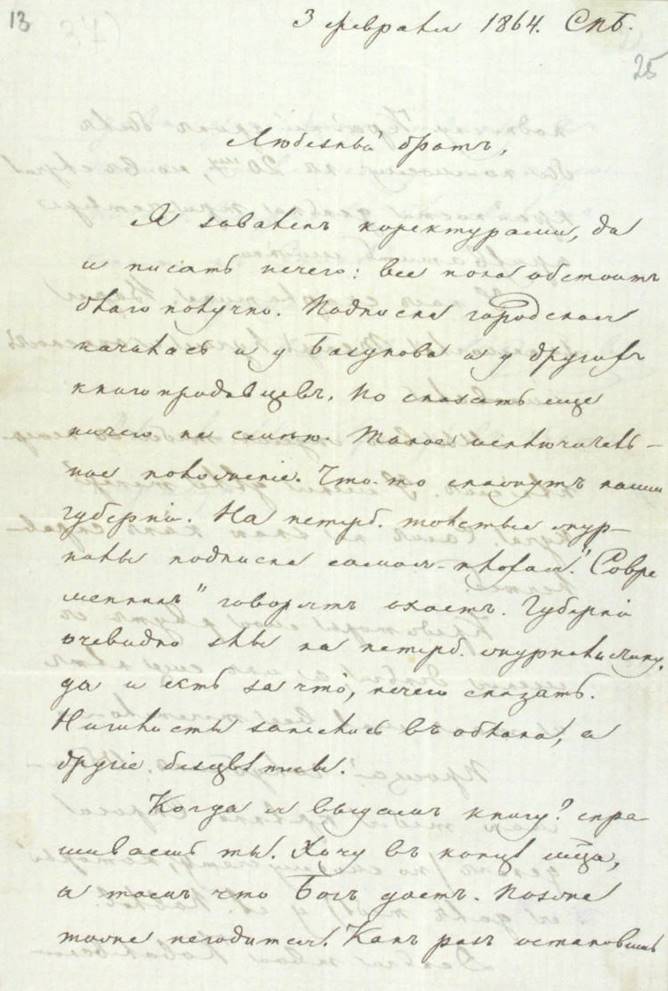 13
3 февраля 1864. Спб.
25
Любезный братъ,
Я заваленъ коректурами, да
и писать нечего: все пока обстоитъ
благополучно. Подписка городская
началась и у Базунова и у другихъ
книгопродавцевъ. Но сказать еще
ничего не смѣю. Такое исключитель-
ное положеніе. Что-то скажутъ наши
губерніи. На петерб. толстые жур-
налы подписка самая плохая. "Совре
менникъ" говорятъ охаетъ. Губерніи
очевидно злы на петерб. журналистику,
да и есть за что, нечего сказать.
Нигилисты занеслись въ облака, а
другіе безцвѣтны.
Когда я выдамъ книгу? спра-
шиваешь ты. Хочу въ концѣ мѣсяца,
а тамъ что Богъ дастъ. Позже
тоже негодится. Какъ разъ остановишь